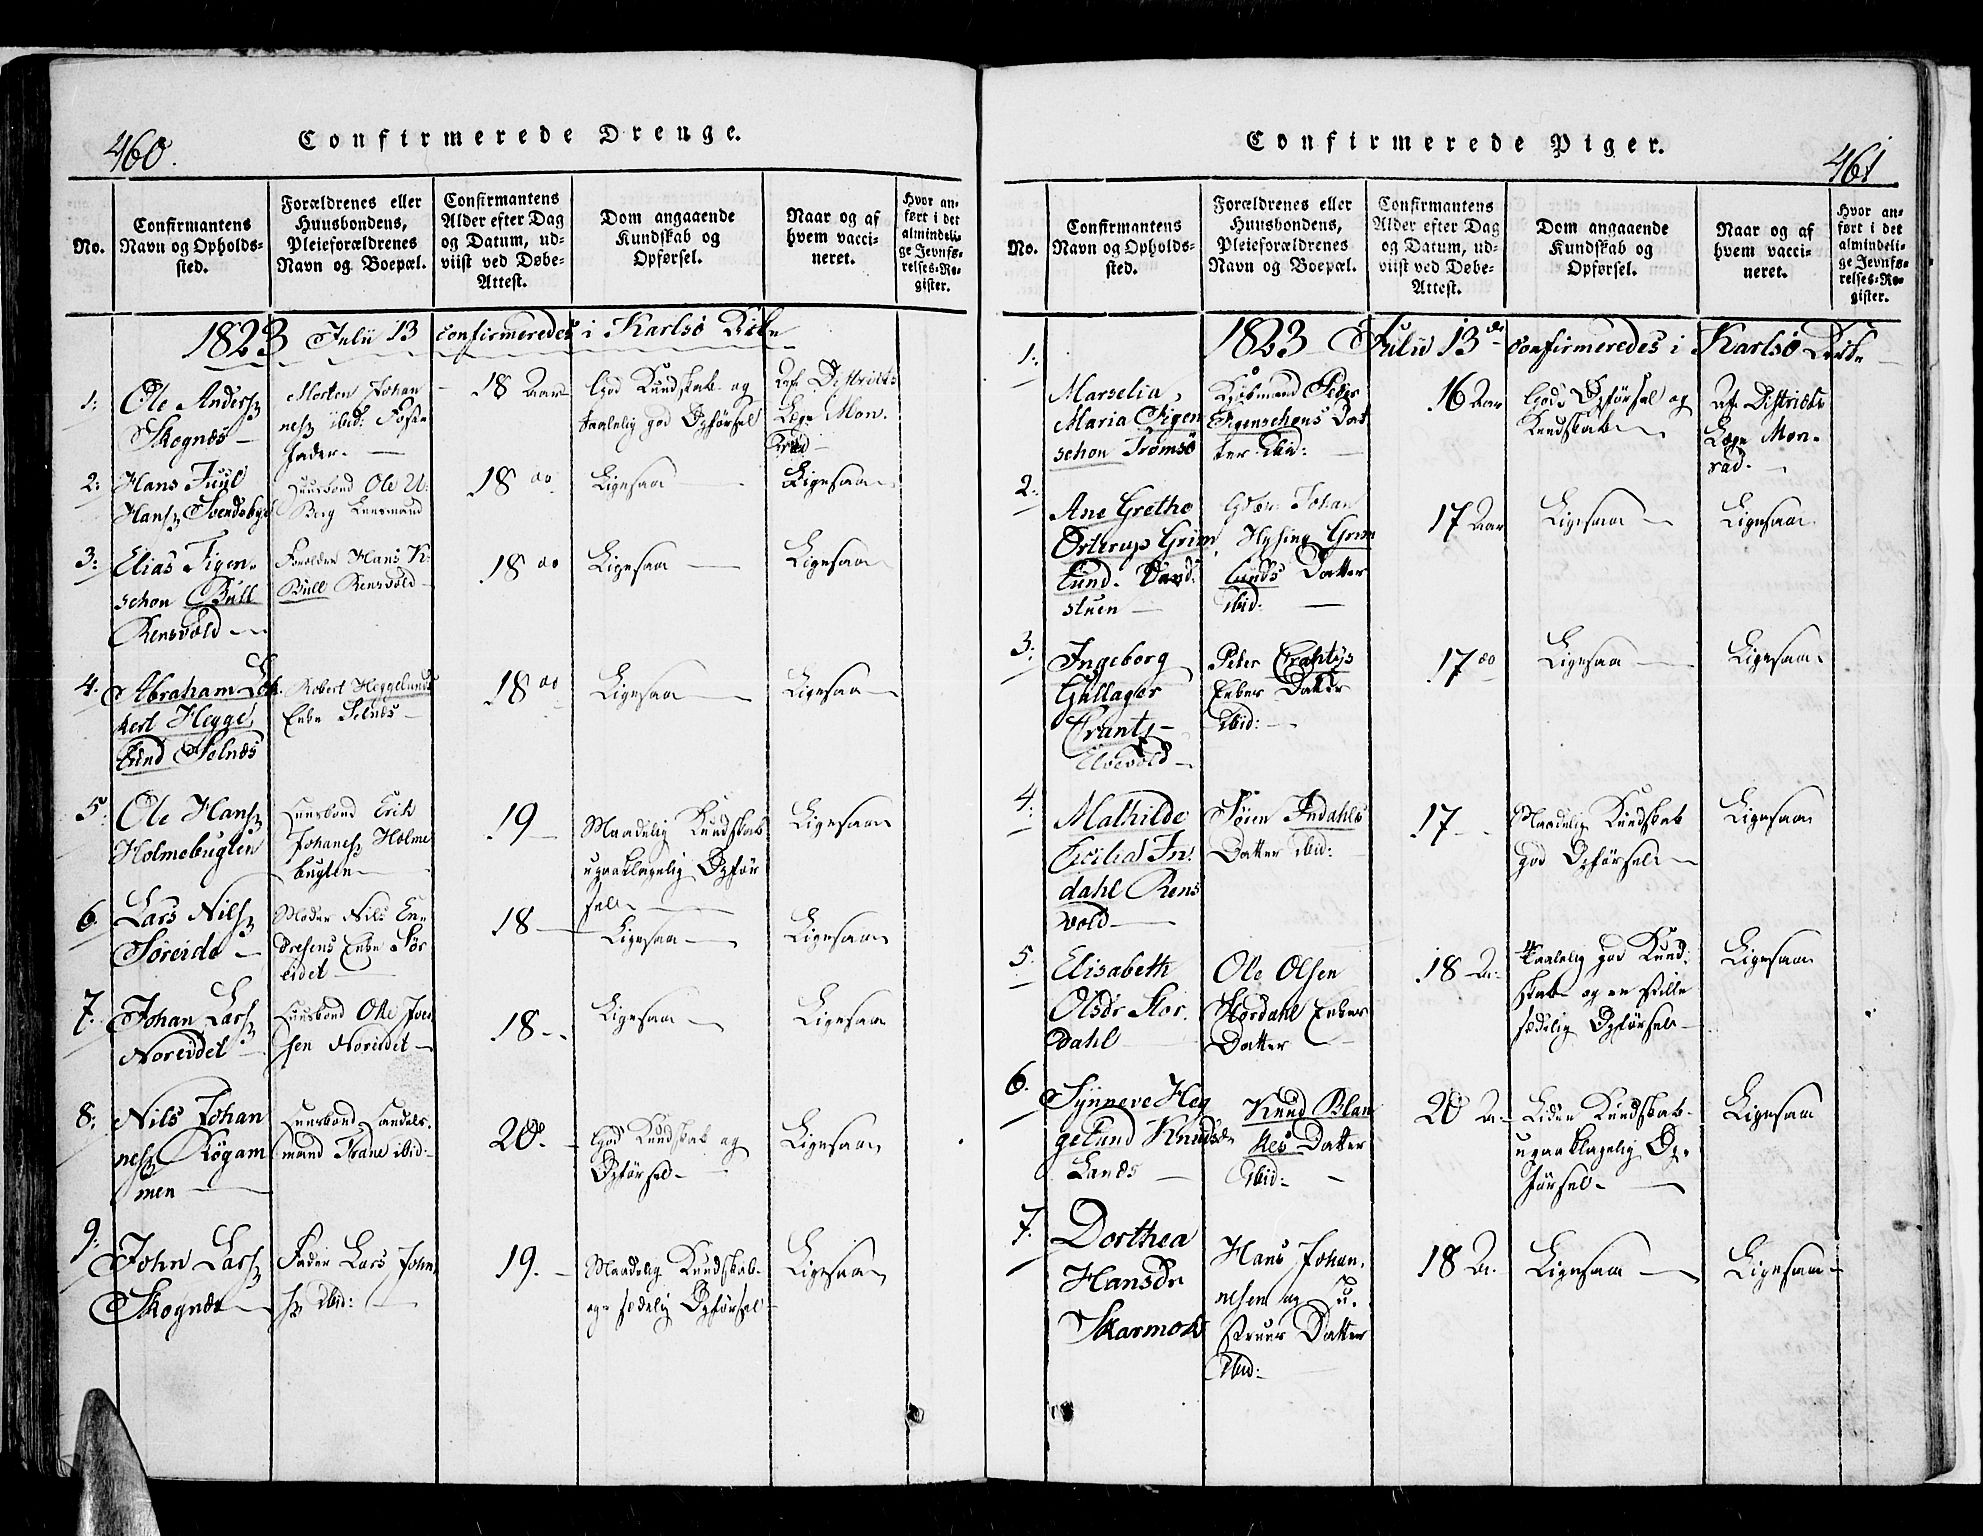 460.
Confirmerede Drenge.
No.
Confirmantens
Navn og Opholds-
sted.
Forældrenes eller
Huusbondens,
Pleieforældrenes
Navn og Boepæl.
Confirmantens
Alder efter Dag
og Datum, ud-
viist ved Døbe-
Attest.
Dom angaaende
Kundskab og
Opførsel.
Naar og af
hvem vacci-
neret.
Hvor an-
ført i det
almindeli-
ge Jevnfø-
relses-Re-
gister.
1823 Julii 13 confirmeredes i Karlsø Kirke
1:
Ole Anders
Skognæs
Morten Johan
nes ibid: Foster
fader.
18 Aar
God Kundskab og
taalelig god Opførsel
af Districts
Læge Mon-
rad
2:
Hans Juul
Hans Svendsbye
Huusbond Ole U.
Berg Leensmand
18
Ligesaa
Ligesaa
3:
Elias Figen-
schou Bull
Rensvold
Forældre Hans K.
Bull Rensvold
18
Ligesaa
Ligesaa
4.
Abraham
kert Hegge
lund Selnæs
Robert Heggelunds
Enke Selnæs
18
Ligesaa
Ligesaa
5:
Ole Hans
Holmebugten
Huusbond Erik
Johanes Holme
bugten
19
Maadelig Kundskab
upaaklagelig Opfør
sel
Ligesaa
6.
Lars Nils
Søreide
Moder Nils En-
dresens Enke Sør
eidet
18
Ligesaa
Ligesaa
7.
Johan Lars
Noreidet
Huusbond Ole Iver
sen Noreidet
18
Ligesaa
Ligesaa
8:
Nils Johan
nes Røgam
men
Huusbond Handels-
mand Krane ibid:
20.
God Kundskab og
Opførsel
Ligesaa
9:
John Lars
Skognæs
Fader Lars John
ibid:
19.
Maadelig Kundskab
og sædelig Opførsel
Ligesaa
461
Confirmerede Piger.
No.
Confirmantens
Navn og Opholds-
sted.
Forældrenes eller
Huusbondens,
Pleieforældrenes
Navn og Boepæl.
Confirmantens
Alder efter Dag
og Datum, ud-
viist ved Døbe-
Attest.
Dom angaaende
Kundskab og
Opførsel.
Naar og af
hvem vacci-
neret.
Hvor an-
ført i det
almindeli-
ge Jevnfø-
relses-Re-
gister.
1823 Julii 13de confirmeredes i Karlsø Kirke
1:
Marselia
Maria Figen
schou Tromsø
Kjøbmand Peder
Figenschous Dat
ter ibid:
16 Aar
God Opførsel og
Kundskab
af Districts
Læge Mon-
rad.
2:
Ane Grethe
Østerup Grøn
lund. Vand
stuen
Johan
Hysing Grøn
lunds Datter
ibid:
17 Aar
Ligesaa
Ligesaa
3:
Ingeborg
Gallager
Crantz
Elvevold
Peter Crantzs
Enkes Datter
ibid:
17
Ligesaa
Ligesaa
4:
Mathilde
Cecilia In-
dahl Rens
vold
Søren Indahls
Datter ibid:
17
Maadelig Kundskab
god Opførsel
Ligesaa
5.
Elisabeth
Olsdr Stor
dahl
Ole Olsen
Stordahl Enkes
Datter
18 A.
taalelig god Kund-
skab og en stille
sædelig Opførsel
Ligesaa
6.
Synneve Heg
gelund Knudsdr
Lanæs
Knud Blan
kes Datter
ibid:
20 A.
Liden Kundskab
upaaklagelig Op-
førsel
Ligesaa
7.
Dorthea
Hansdr
Skarmok
Hans Johan-
nesen og Hu-
struer Datter
ibid:
18 A.
Ligesaa
Ligesaa